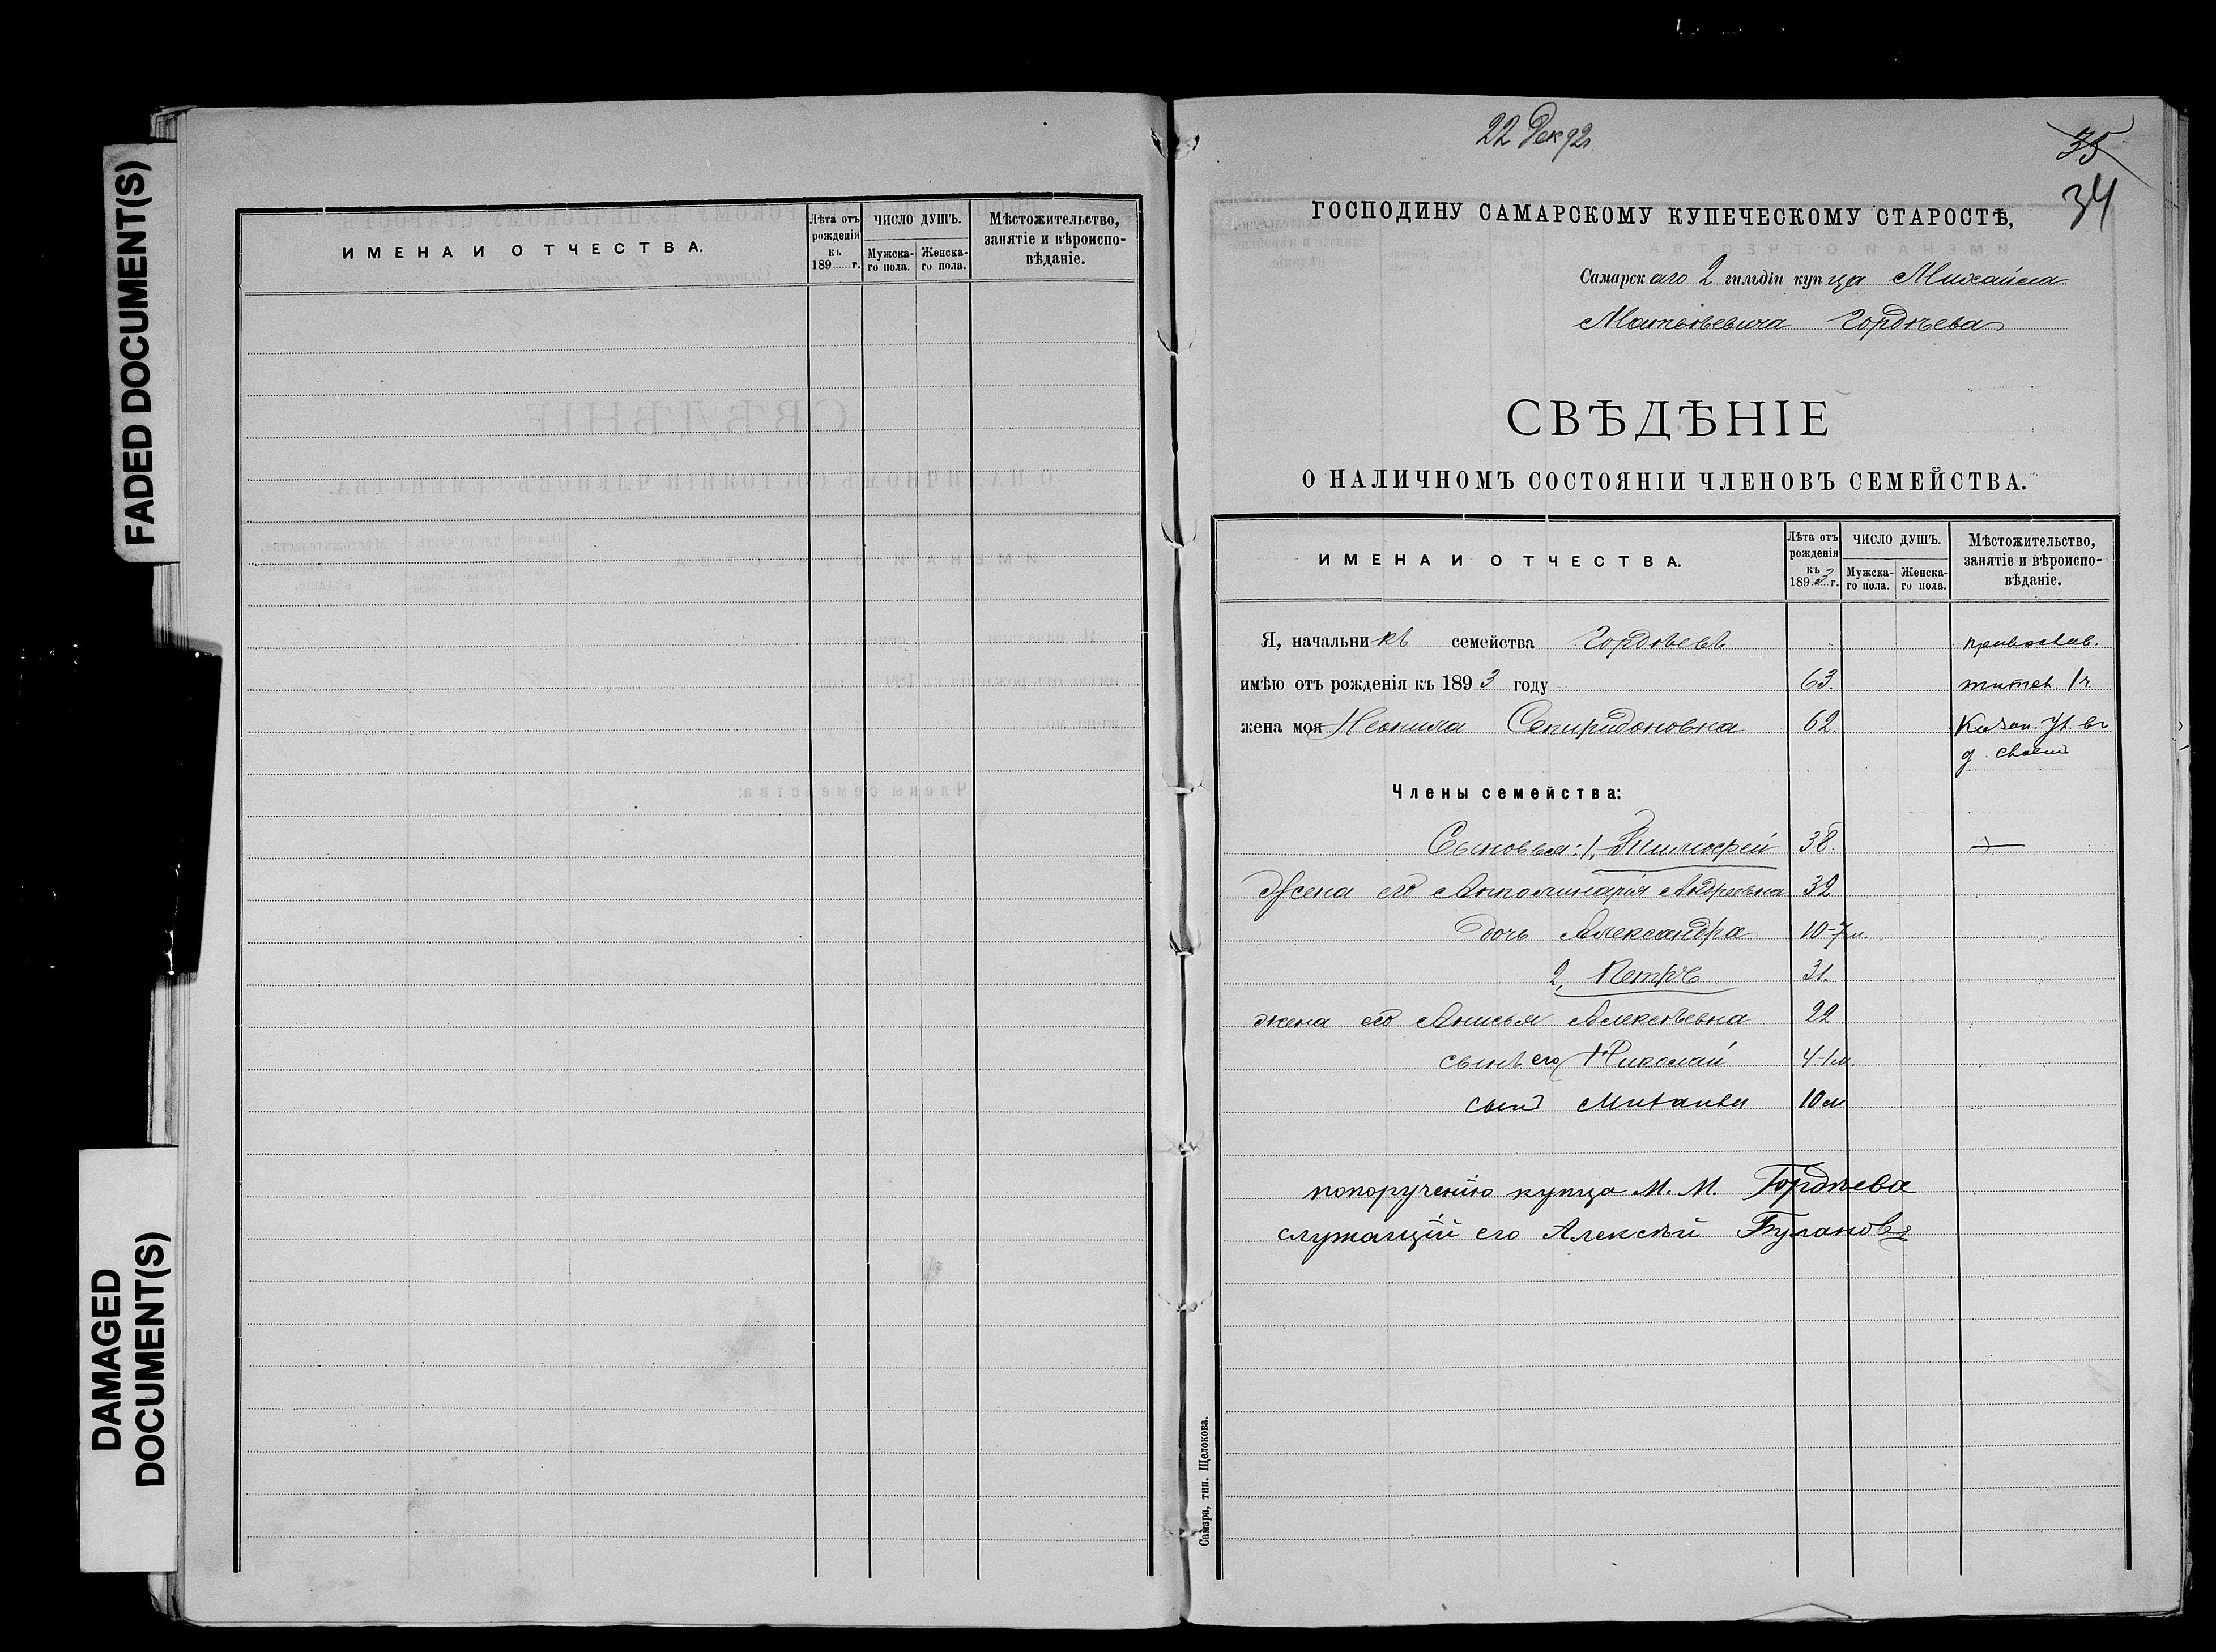 FADED DOCUMENT(S)
DAMAGED
DOCUMENT(S)
ИМЕНА И ОТЧЕСТВА.
Лѣта отъ рожденія къ 189 г.
ЧИСЛО ДУШЪ.
Мужска-го пола.
Женска-го пола.
Мѣстожительство, занятіе и вѣроиспо-вѣданіе.
22 Дек 92
35
34
ГОСПОДИНУ САМАРСКОМУ КУПЕЧЕСКОМУ СТАРОСТѢ,
Самарскаго 2 гильдіи купца Михаила
Матвѣевича Гордѣева
СВѢДѢНІЕ
О НАЛИЧНОМЪ СОСТОЯНІИ ЧЛЕНОВЪ СЕМЕЙСТВА.
ИМЕНА И ОТЧЕСТВА.
Лѣта отъ рожденія къ 1893 г.
ЧИСЛО ДУШЪ.
Мужска-го пола.
Женска-го пола.
Мѣстожительство, занятіе и вѣроиспо-вѣданіе.
Я, начальникъ семейства Гордѣевъ православ.
имѣю отъ рожденія къ 1893 году 63. 1 ч
жена моя Неонила Спиридоновна 62. Казан. ул. въ
д. своемъ
Члены семейства:
Сыновья: 1, Тимофей 38.
Жена его Апполинарія Андреевна 32
дочь Александра 10-7 м.
2, Петръ 31.
жена его Анисья Алексѣевна 22
сынъ его Николай 4-1 м.
сынъ Михаилъ 10 м
по порученію купца М. М. Гордѣева
служащій его Алексѣй Булановъ
Самара, тип. Щелокова.